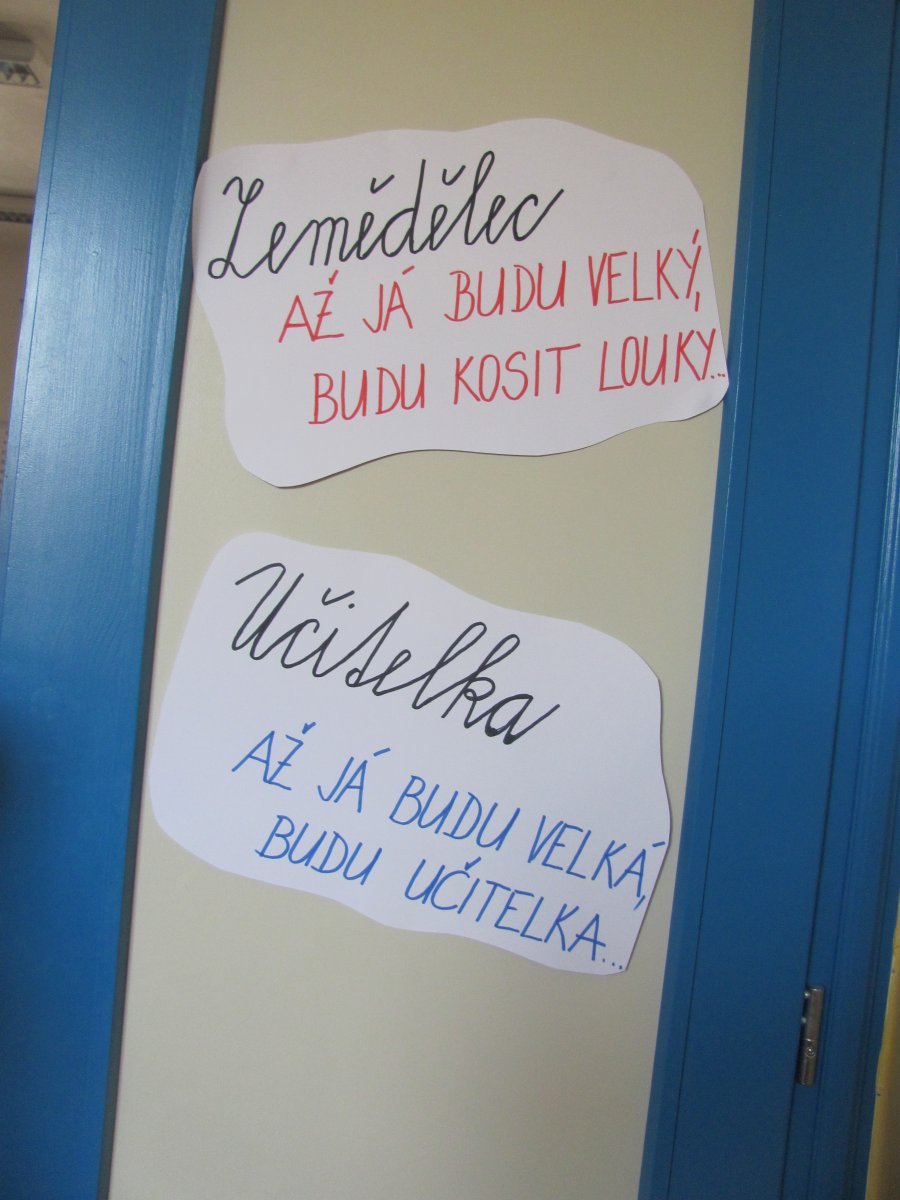 Zemědělec
AŽ JÁ BUDU VELKÝ,
BUDU KOSIT LOUKY...
Učitelka
AŽ JÁ BUDU VELKÁ,
BUDU UČITELKA...